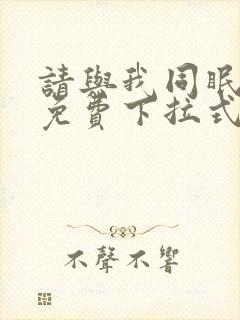 請與我同眠
免費下拉式
不聲不響